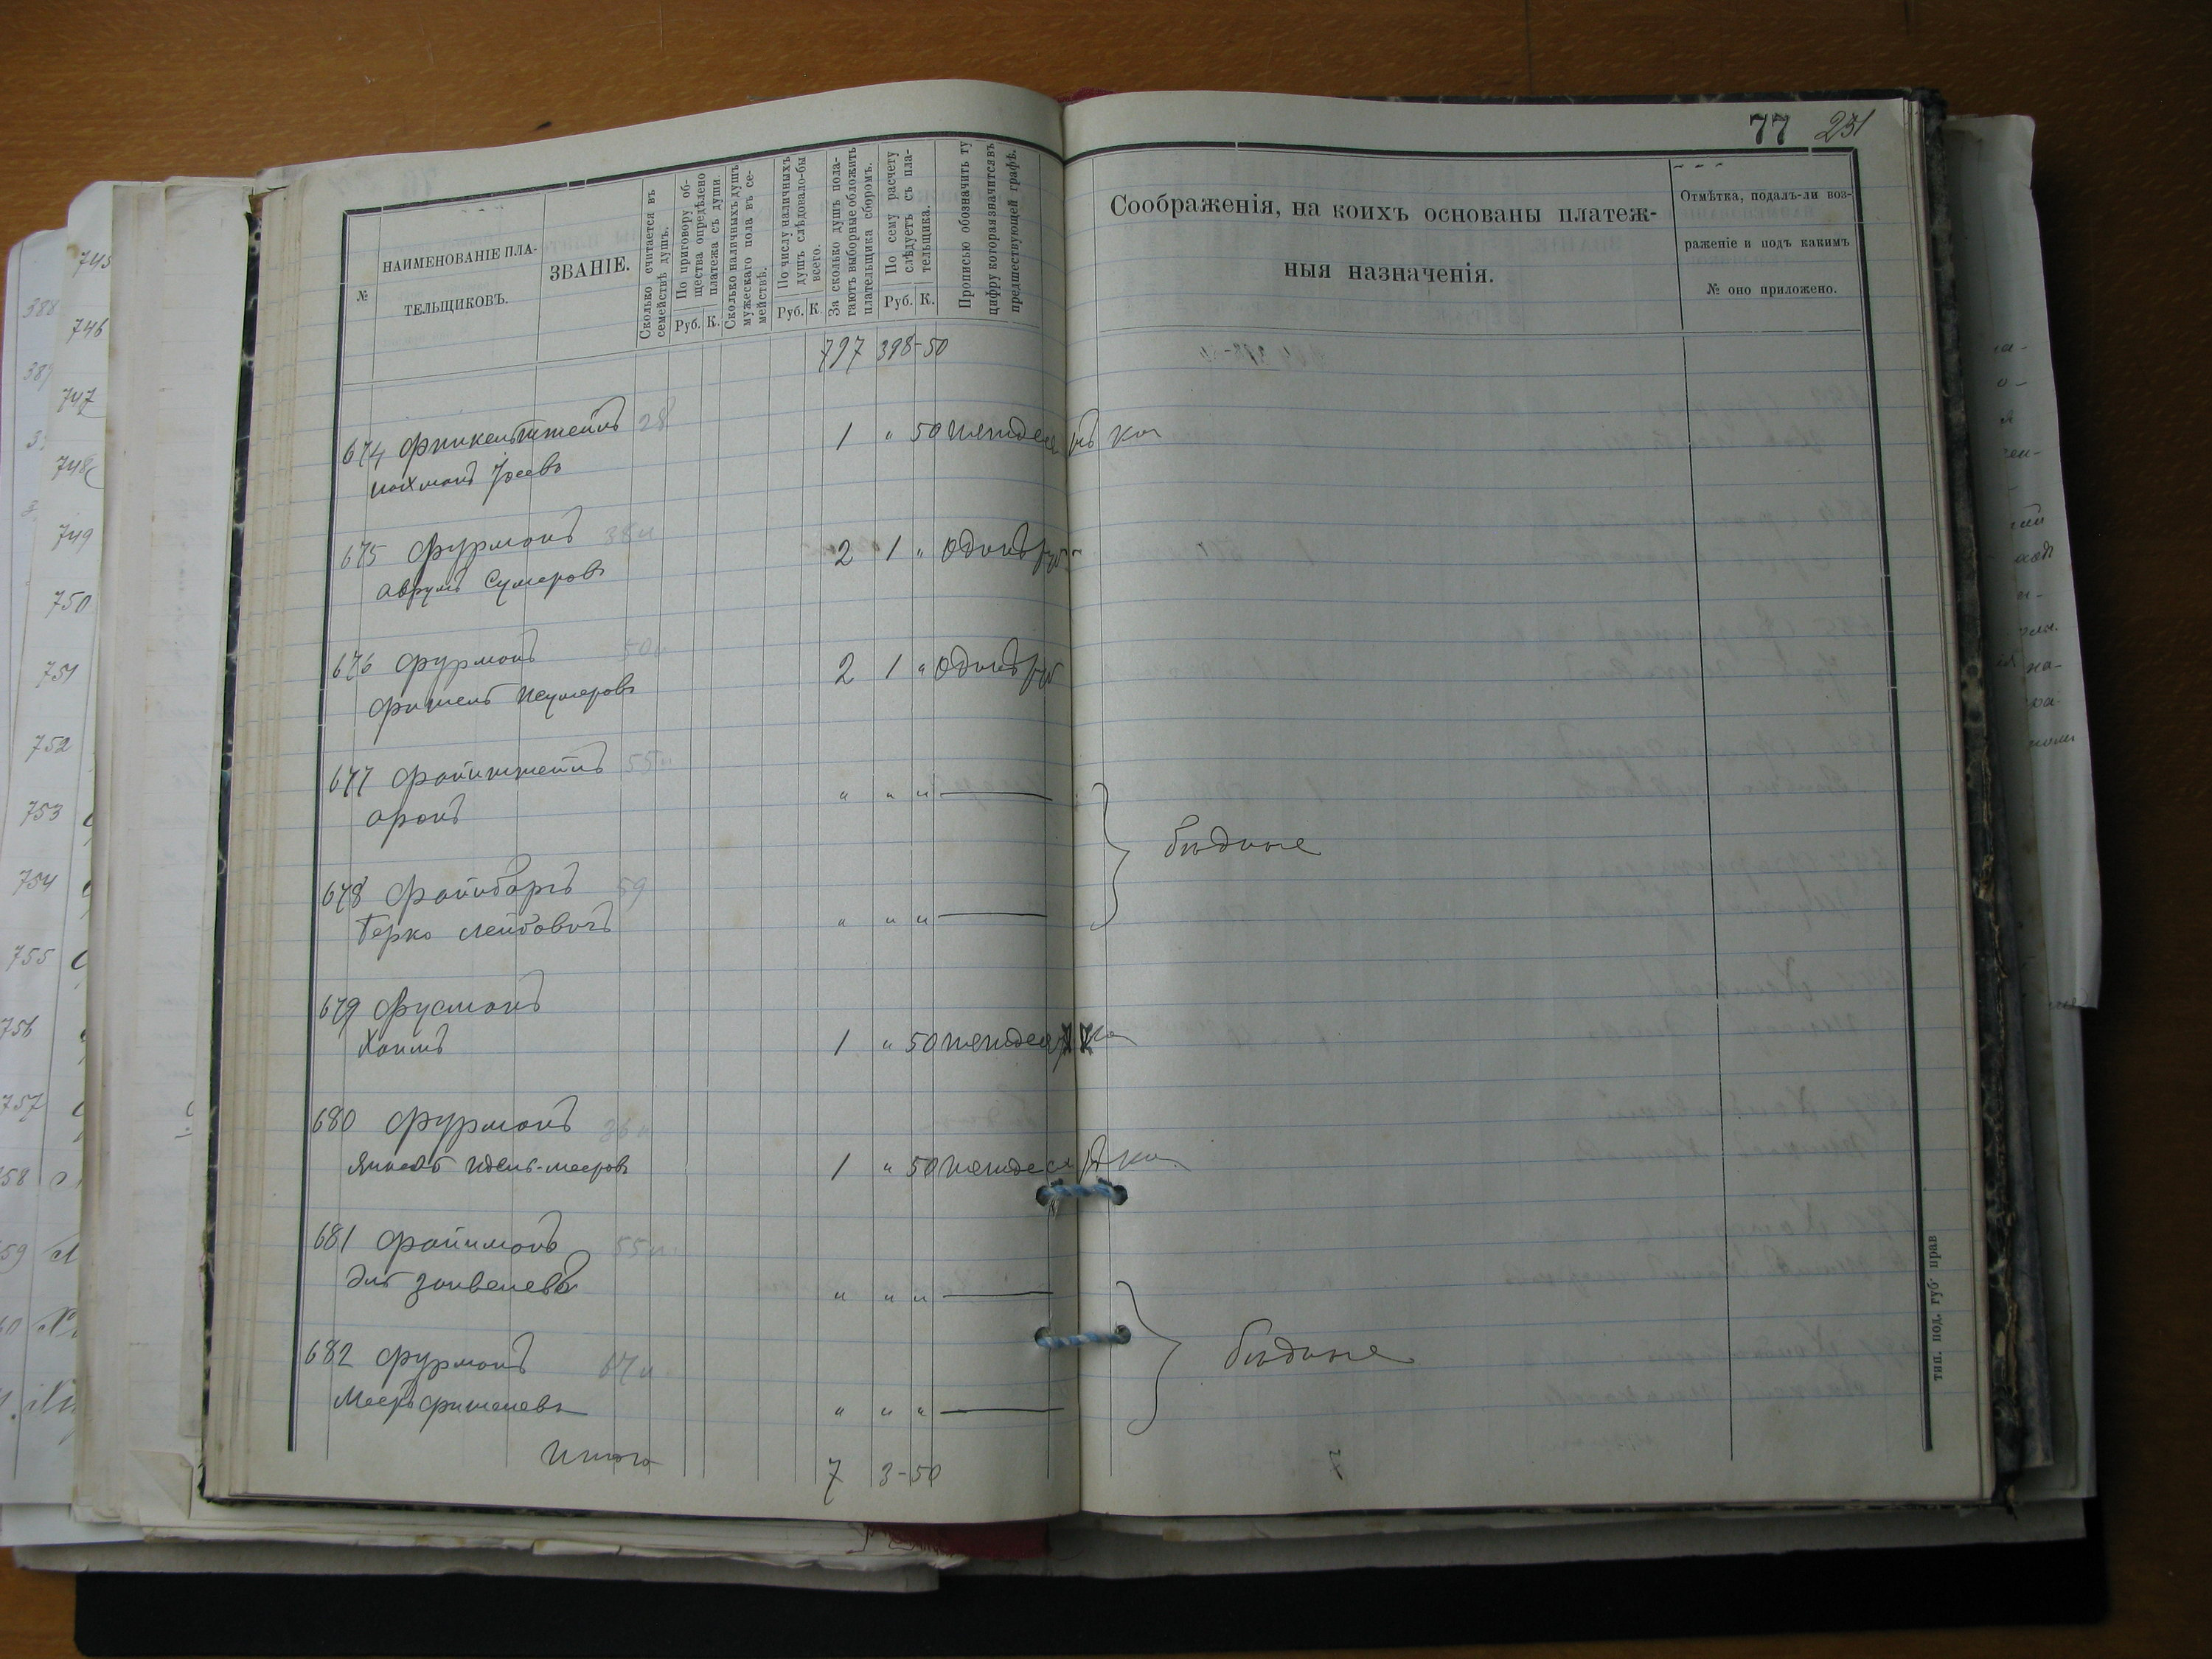 77 231
№
НАИМЕНОВАНІЕ ПЛА-
ТЕЛЬЩИКОВЪ.
ЗВАНІЕ.
Сколько считается въ
семействѣ душъ.
По приговору об-
щества опредѣлено
платежа съ души
Руб. К.
Сколько наличныхъ душъ
мужескаго пола въ се-
мействѣ.
По числу наличныхъ
душъ слѣдовало-бы
всего.
Руб. К.
За сколько душъ пола-
гаютъ выборные обложить
плательщика сборомъ.
По сему расчету
слѣдуетъ съ пла-
тельщика.
Руб. К.
Прописью обозначить ту
цифру которая значится въ
предшествующей графѣ.
Соображенія, на коихъ основаны платеж-
ныя назначенія.
Отмѣтка, подалъ-ли воз-
раженіе и подъ какимъ
№ оно приложено.
797 398-50
674 Финкельштейнъ 28 1 " 50 пятдесятъ коп
Нахманъ Іосевъ
675 Фурманъ 38 2 1 " Одинъ руб
Аврумъ Сумеровъ
676 Фурманъ 50 2 1 " Одинъ руб
Фишель
677 Файнштейнъ 55 " " "
Аронъ
бѣдные
678 Файнбаргъ 59
Берко Лейбовичъ " " "
679 Фусманъ
Хаимъ 1 " 50 пятдесят коп
680 Фурманъ 36
Янкель Идель-Мееровъ 1 " 50 пятдесятъ коп
681 Файнманъ 55
Эль Зайвелевъ " " "
бѣдные
682 Фурманъ 67
Мееръ Фишелевъ " " "
Итого 7 3-50
тип. под. губ. прав
745
746
747
748
749
750
751
752
753
754
755
756
757